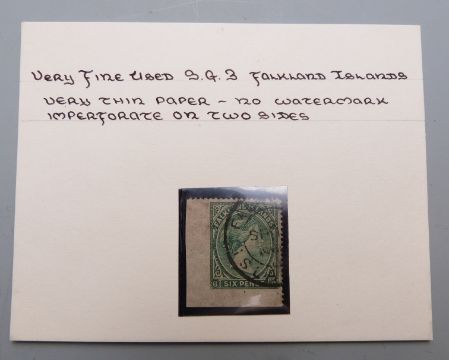 Very Fine Used S.G. 3 Falkland Islands
Very thin paper - no watermark
imperforate on two sides
FALKLAND ISLANDS
6 SIX PEN